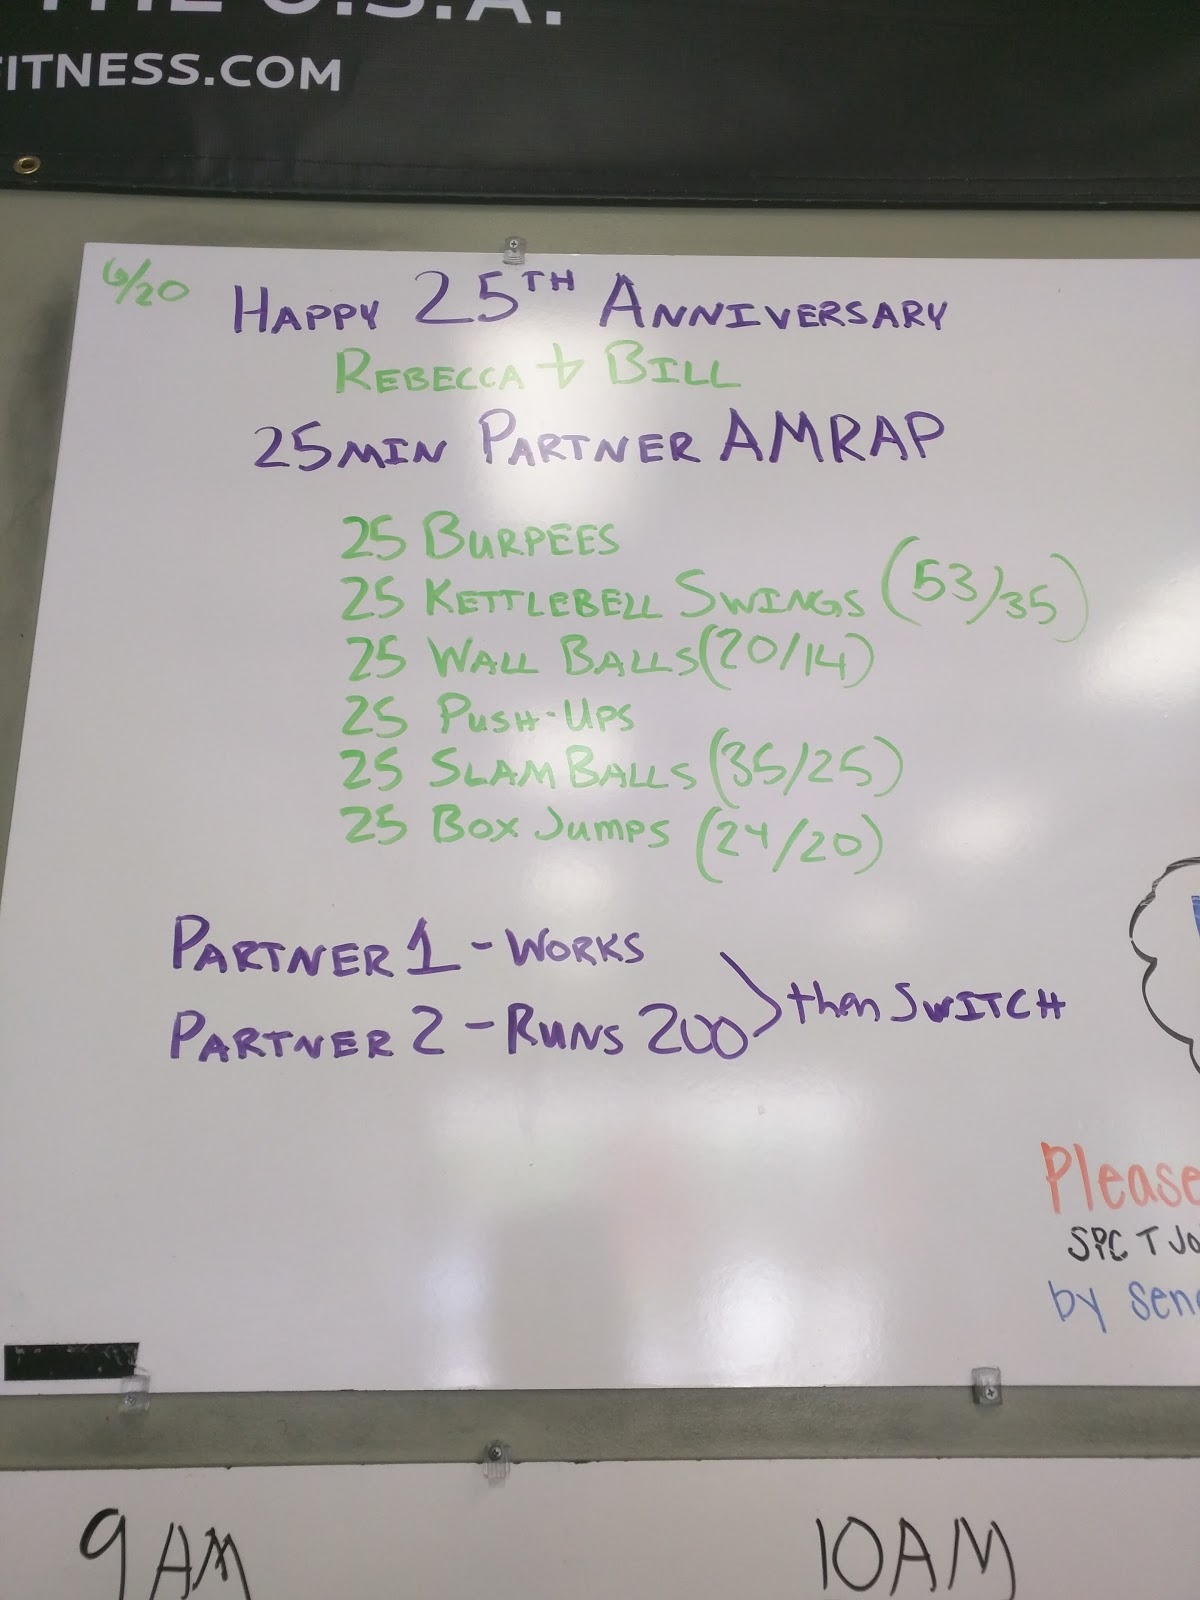 THE U.S.A.
FITNESS.COM
6/20
HAPPY 25TH ANNIVERSARY
REBECCA + BILL
25 MIN PARTNER AMRAP
25 BURPEES
25 KETTLEBELL SWINGS (53/35)
25 WALL BALLS (20/14)
25 PUSH-UPS
25 SLAM BALLS (35/25)
25 BOX JUMPS (24/20)
PARTNER 1 - WORKS
PARTNER 2 - RUNS 200
then SWITCH
Please
SPC T Jo
by sen
9 AM
10 AM